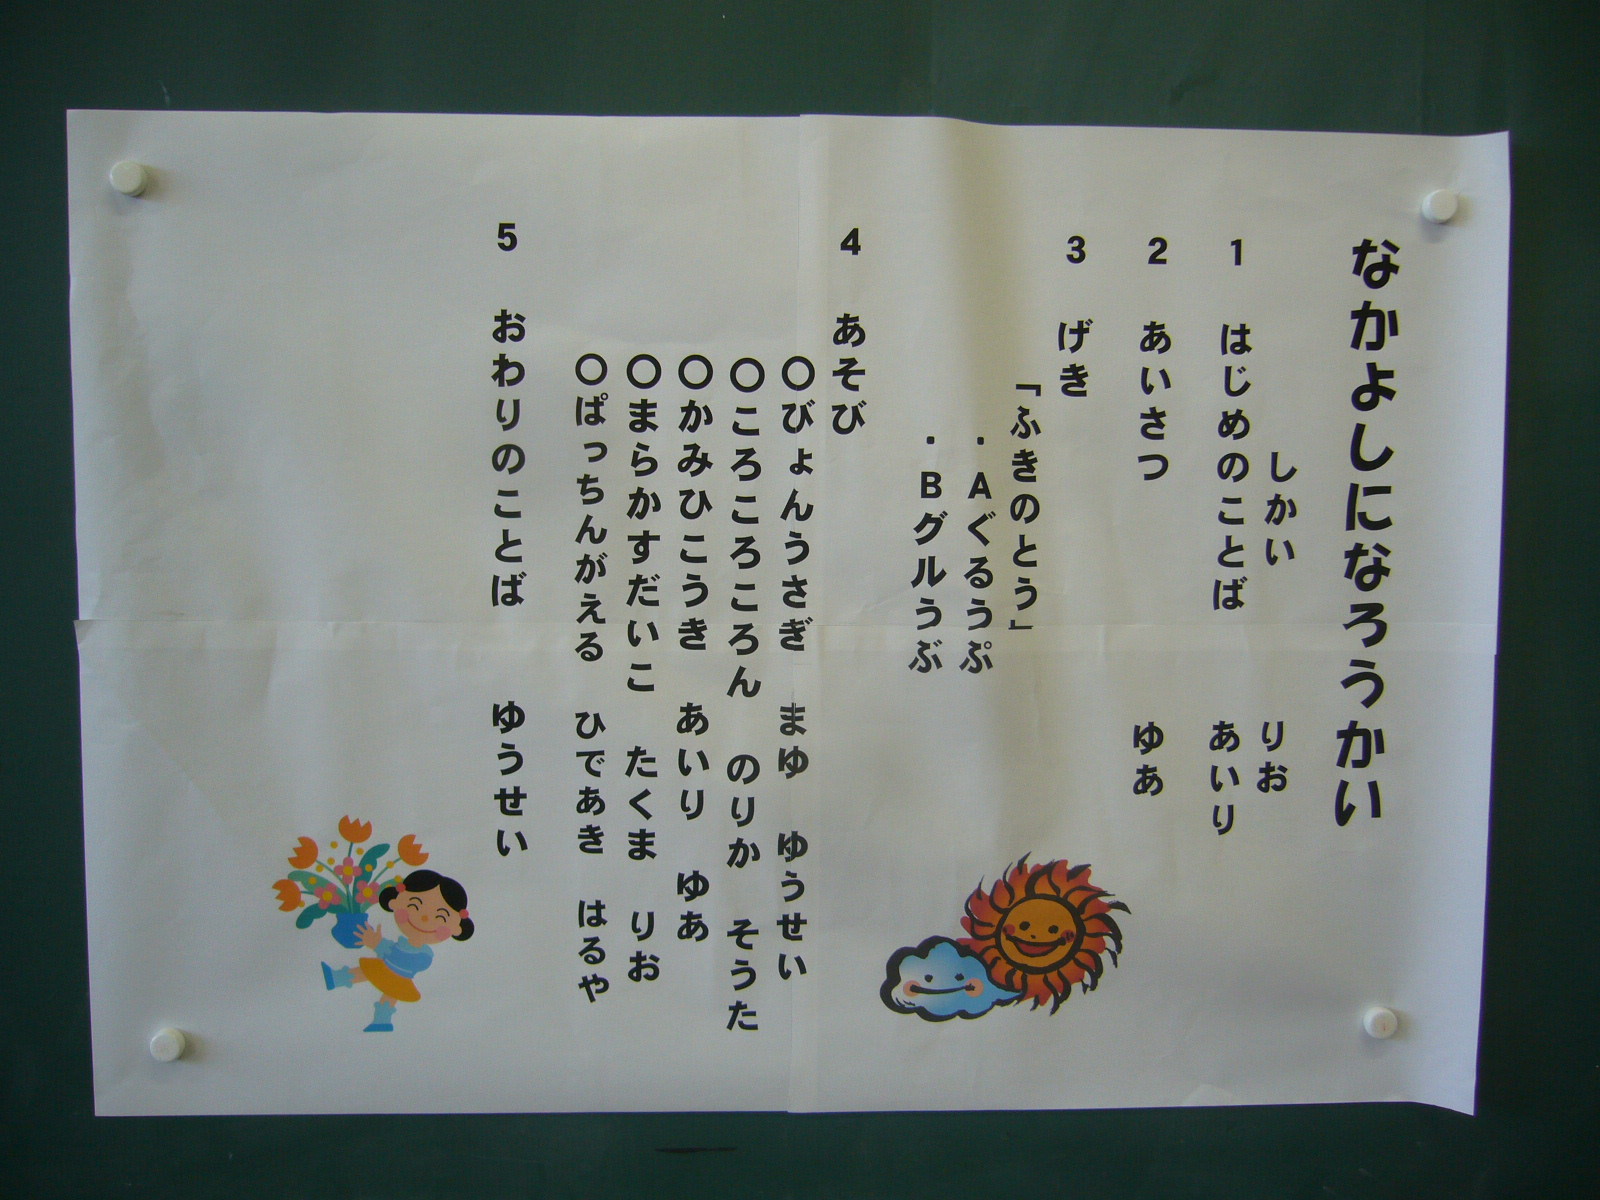 なかよしになろうかい
しかい　りお
1　はじめのことば　あいり
2　あいさつ　ゆあ
3　げき
「ふきのとう」
・Aぐるうぷ
・Bグルうぶ
4　あそび
○びょんうさぎ　まゆ　ゆうせい
○ころころころん　のりか　そうた
○かみひこうき　あいり　ゆあ
○まらかすだいこ　たくま　りお
○ぱっちんがえる　ひであき　はるや
5　おわりのことば　ゆうせい